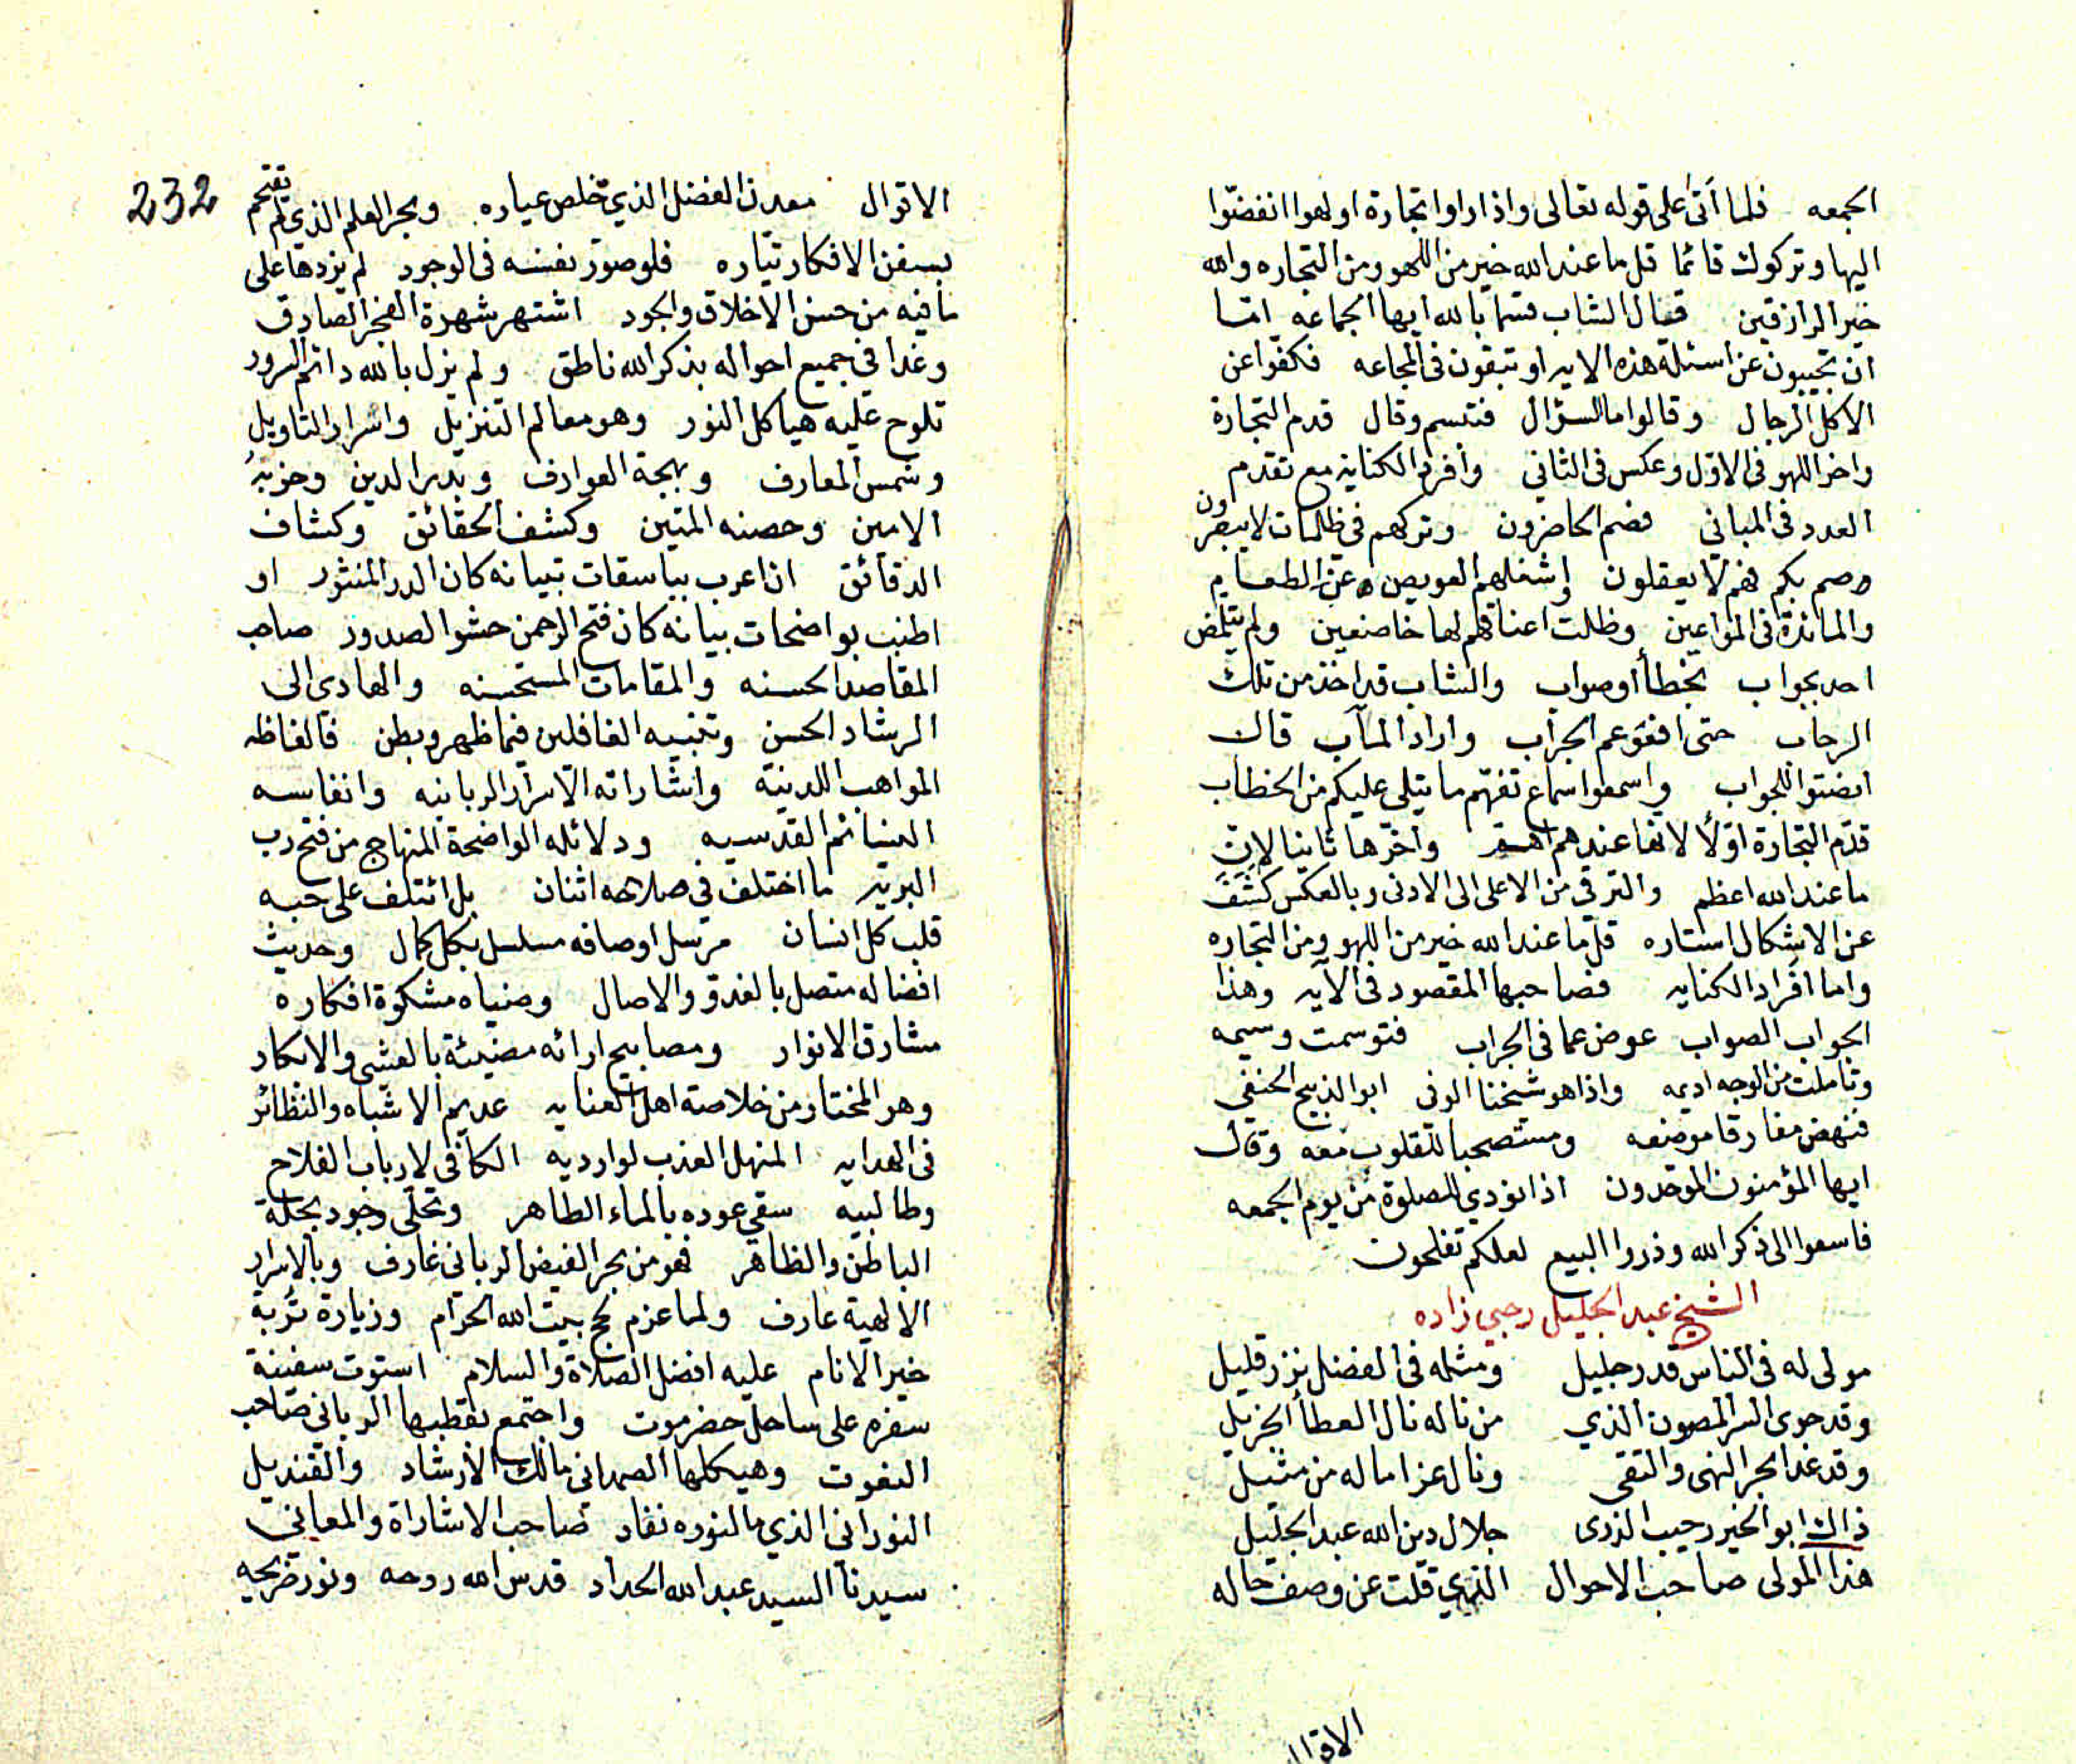 الجمعه فلما أتى على قوله تعالى واذا راوا تجارة او لهوا انفضوا
اليها وتركوك قائما قل ما عند الله خير من اللهو ومن التجاره والله
خير الرازقين فقال الشاب قسما بالله ايها الجماعه اما
ان تجيبون عن اسئلة هذه الايه او تبقون في المجاعه فكفوا عن
الاكل الرجال وقالوا ما السؤال فتبسم وقال قدم التجارة
واخر اللهو في الاول وعكس في الثاني وافرد الكناية مع تقدم
العدد في المباني فصم الحاضرون وتركهم في ظلمات لا يبصرون
وصم بكم فهم لا يعقلون واشغلهم العويص عن الطعام
والمائدة في المواعين وظلت اعناقهم لها خاضعين ولم يتلمض
احد بجواب بخطأ أو صواب والشاب قد اخذ من تلك
الرحاب حتى افعوعم الجراب واراد المآب قال
انصتوا للجواب واسمعوا سماع تفهم ما يتلى عليكم من الخطاب
قدم التجارة اولا لانها عندهم اهم واخرها ثانيا لان
ما عند الله اعظم والترقي من الاعلى الى الادنى وبالعكس كشف
عن الاشكال استاره قل ما عند الله خير من اللهو ومن التجاره
واما افراد الكنايه فصاحبها المقصود في الآيه وهذا
الجواب الصواب عوض عما في الجراب فتوسمت وسيمه
وتاملت من الوجه اديمه واذا هو شيخنا الوفى ابو الذبيح الحنفي
فنهض مفارقا موضعه ومستصحبا للقلوب معه وقال
ايها المؤمنون الموحدون اذا نودي للصلوة من يوم الجمعه
فاسعوا الى ذكر الله وذروا البيع لعلكم تفلحون
الشيخ عبد الجليل رجبي زاده
مولى له في الناس قدر جليل ومثله في الفضل نزر قليل
وقد حوى السر المصون الذي من ناله نال العطا الجزيل
وقد غدا بحر النهى والتقى ونال عزا ما له من مثيل
ذاك ابو الخير رحيب الذرى جلال دين الله عبد الجليل
هذا المولى صاحب الاحوال الذي قلت عن وصف حاله
الاقوال
232
الاقوال معدن الفضل الذي خلص عياره وبحر العلم الذي لم تقتحم
بسفن الافكار تياره فلو صور نفسه في الوجود لم يزدها على
ما فيه من حسن الاخلاق والجود اشتهر شهرة الفجر الصادق
وغدا في جميع احواله بذكر الله ناطق ولم يزل بالله دائم السرور
تلوح عليه هياكل النور وهو معالم التنزيل واسرار التاويل
وشمس المعارف وبهجة العوارف وبدر الدين وحزبه
الامين وحصنه المتين وكشف الحقائق وكشاف
الدقائق ان اعرب بباسقات تبيانه كان الدر المنثور او
اطنب بواضحات بيانه كان فتح الرحمن حشو الصدور صاحب
المقاصد الحسنه والمقامات المستحسنه والهادي الى
الرشاد الحسن وتنبيه الغافلين فيما ظهر وبطن فالفاظه
المواهب اللدنية واشاراته الاسرار الربانيه وانفاسه
النسائم القدسيه ودلائله الواضحة المنهاج من فتح رب
البريه ما اختلف في صلاحه اثنان بل ائتلف على حبه
قلب كل انسان مرسل اوصافه مسلسل بكل كمال وحديث
افضاله متصل بالغدو والاصال وضياه مشكوة افكاره
مشارق الانوار ومصابيح ارائه مضيئة بالعشي والابكار
وهو المختار من خلاصة اهل العنايه عديم الاشباه والنظائر
في الهدايه المنهل العذب لوارديه الكافي لارباب الفلاح
وطالبيه سقي عوده بالماء الطاهر وتحلى وجوده بحلة
الباطن والظاهر فهو من بحر الفيض الرباني غارف وبالاسرار
الالهية عارف ولما عزم لحج بيت الله الحرام وزيارة تربة
خير الانام عليه افضل الصلاة والسلام استوت سفينة
سفره على ساحل حضرموت واجتمع بقطبها الرباني صاحب
النعوت وهيكلها الصمداني مالك الارشاد والقنديل
النوراني الذي ما لنوره نفاد صاحب الاشاراة والمعاني
سيدنا السيد عبد الله الحداد قدس الله روحه ونور ضريحه